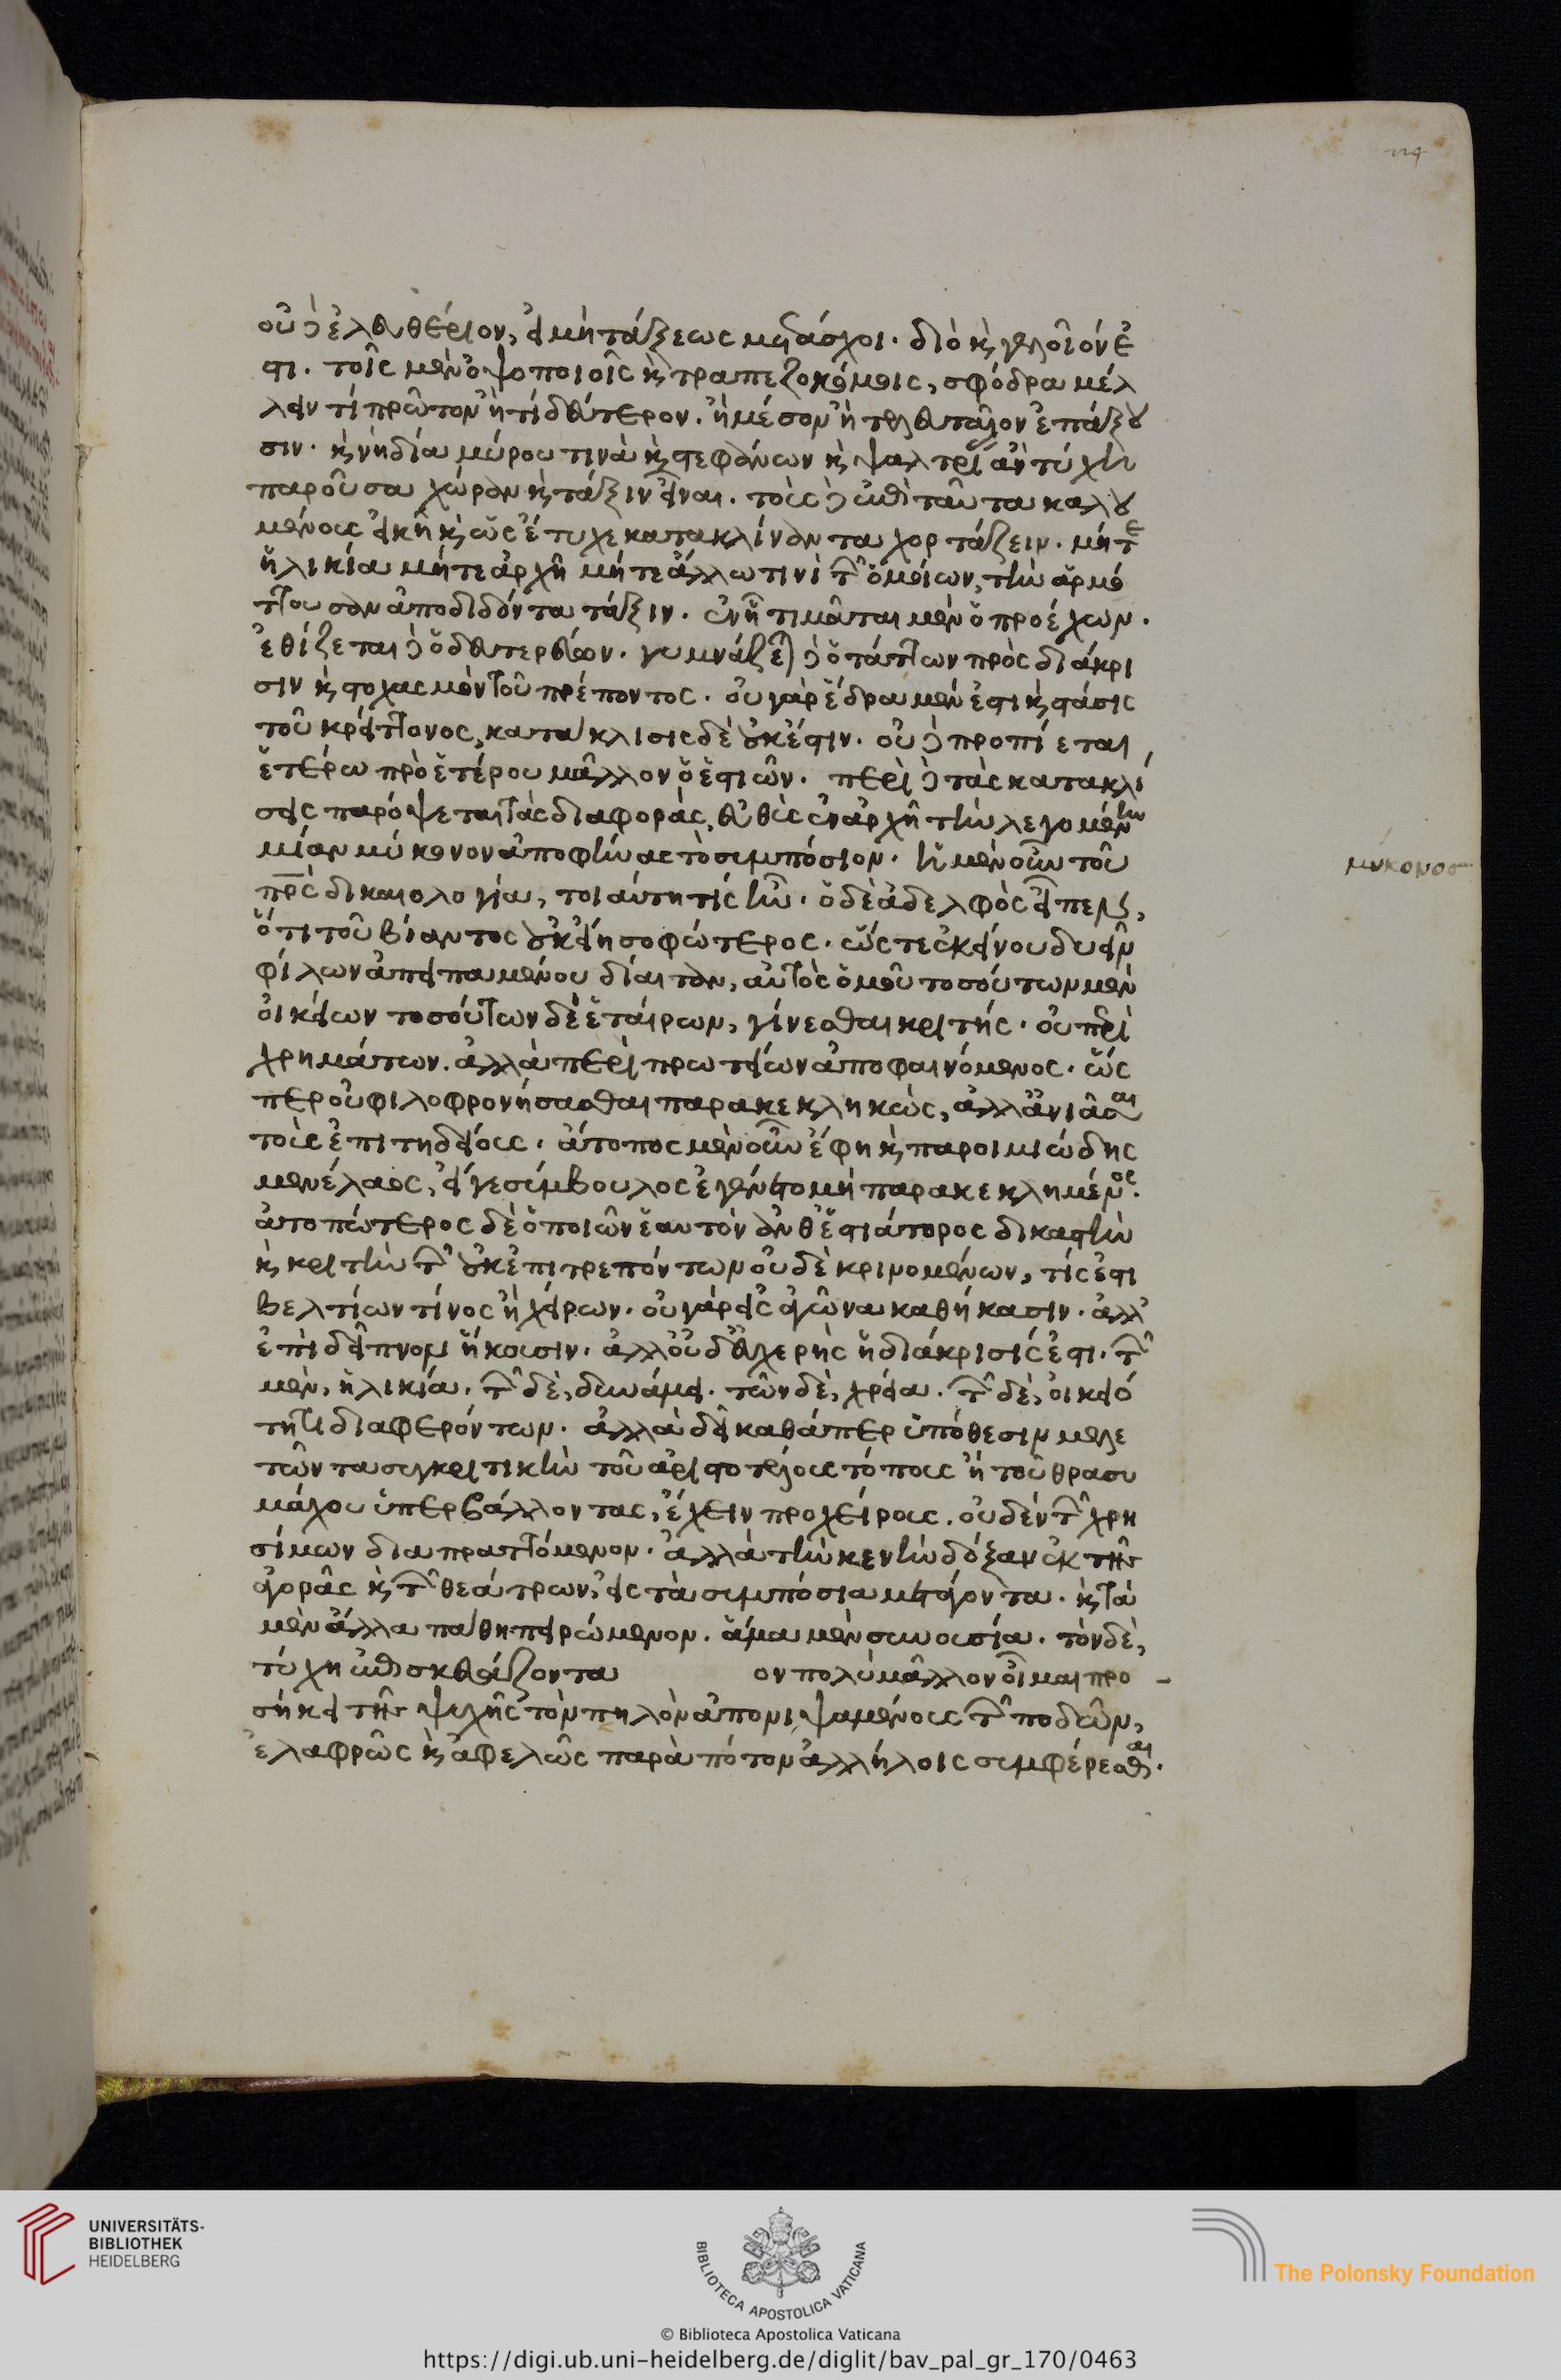 οὐδὲ ἐλευθέριον, εἰ μὴ τάξεως μετάσχοι. διὸ καὶ γελοῖόν ἐ
στι. τοῖς μὲν ὀψοποιοῖς καὶ τραπεζοκόμοις, σφόδρα μέλ
λειν τί πρῶτον ἢ τί δεύτερον. ἢ μέσον ἢ τελευταῖον ἐπάξου
σιν. καὶ νὴ δία μύρου τινὰ καὶ στεφάνων καὶ ψαλτρίας ἂν τύχῃ
παροῦσα χώραν καὶ τάξιν εἶναι. τοὺς δὲ ἐπὶ ταῦτα καλου
μένους εἰκῆ καὶ ὡς ἔτυχε κατακλίναντα χορτάζειν. μήτε
ἡλικία μήτε ἀρχῆ μήτε ἄλλω τινὶ τῶν ὁμοίων, τὴν ἁρμό
ττουσαν ἀποδιδόντα τάξιν. ἐν ᾗ τιμᾶται μὲν ὁ προέχων.
ἐθίζεται δὲ ὁ δευτερεύων. γυμνάζεται δὲ ὁ τάττων πρὸς διάκρι
σιν καὶ στοχασμὸν τοῦ πρέποντος. οὐ γὰρ ἕδρα μέν ἐστι καὶ στάσις
τοῦ κρείττονος, κατάκλισις δὲ οὐκ ἔστιν. οὐδὲ προπίεται
ἑτέρω πρὸ ἑτέρου μᾶλλον ὁ ἑστιῶν. περὶ δὲ τὰς κατακλί
σεις παρόψεται τὰς διαφοράς, εὐθὺς ἐν ἀρχῆ τὴν λεγομένην
μίαν μύκονον ἀποφήνας τὸ συμπόσιον. ἡ μὲν οὖν τοῦ
πρς δικαιολογία, τοιαύτη τίς ἦν. ὁ δὲ ἀδελφὸς εἶπεν,
ὅτι τοῦ βίαντος οὐκ εἴη σοφώτερος. ὥστε ἐκείνου δυεῖν
φίλων ἀπειπαμένου δίαιταν, αὐτὸς ὁμοῦ τοσούτων μὲν
οἰκείων τοσούτων δὲ ἑταίρων, γίνεσθαι κριτής. οὐ περὶ
χρημάτων. ἀλλὰ περὶ πρωτείων ἀποφαινόμενος. ὥς
περ οὐ φιλοφρονήσασθαι παρακεκληκώς, ἀλλ' ἀνιᾶσαι
τοὺς ἐπιτηδείους. ἄτοπος μὲν οὖν ἔφη καὶ παροιμιώδης
μενέλαος, εἴγε σύμβουλος ἐγένετο μὴ παρακεκλημένος.
ἀτοπώτερος δὲ ὁ ποιῶν ἑαυτὸν ἀνθ' ἑστιάτορος δικαστὴν
καὶ κριτὴν τῶν οὐκ ἐπιτρεπόντων οὐδὲ κρινομένων, τίς ἐστι
βελτίων τίνος ἢ χείρων. οὐ γὰρ εἰς ἀγῶνα καθήκασιν. ἀλλ'
ἐπὶ δεῖπνον ἥκουσιν. ἀλλ' οὐδ' εὐχερὴς ἡ διάκρισίς ἐστι. τῶν
μὲν, ἡλικία. τῶν δὲ, δυνάμει. τῶν δὲ, χρεία. τῶν δὲ, οἰκειό
τητι διαφερόντων. ἀλλὰ δεῖ καθάπερ ὑπόθεσιν μελε
τῶντα συγκριτικὴν τοῦ ἀριστοτέλους τόπους ἢ τοῦ θρασυ
μάχου ὑπερβάλλοντας, ἔχειν προχείρους. οὐδὲν τῶν χρη
σίμων διαπραττόμενον. ἀλλὰ τὴν κενὴν δόξαν ἐκ τῆς
ἀγορᾶς καὶ τῶν θεάτρων, εἰς τὰ συμπόσια μετάγοντα. καὶ τὰ
μὲν ἄλλα πάθη πειρώμενον. ἅμα μὲν συνουσία. τὸν δὲ,
τύχη ἐπισκευάζοντα ον πολὺ μᾶλλον οἶμαι προ
σήκει τῆς ψυχῆς τὸν πηλὸν ἀπονιψαμένους τῶν ποδῶν,
ἐλαφρῶς καὶ ἀφελῶς παρὰ πότον ἀλλήλοις συμφέρεσθαι.
μύκονος
© Biblioteca Apostolica Vaticana
UNIVERSITÄTS-
BIBLIOTHEK
HEIDELBERG
BIBLIOTECA APOSTOLICA VATICANA
The Polonsky Foundation
https://digi.ub.uni-heidelberg.de/diglit/bav_pal_gr_170/0463